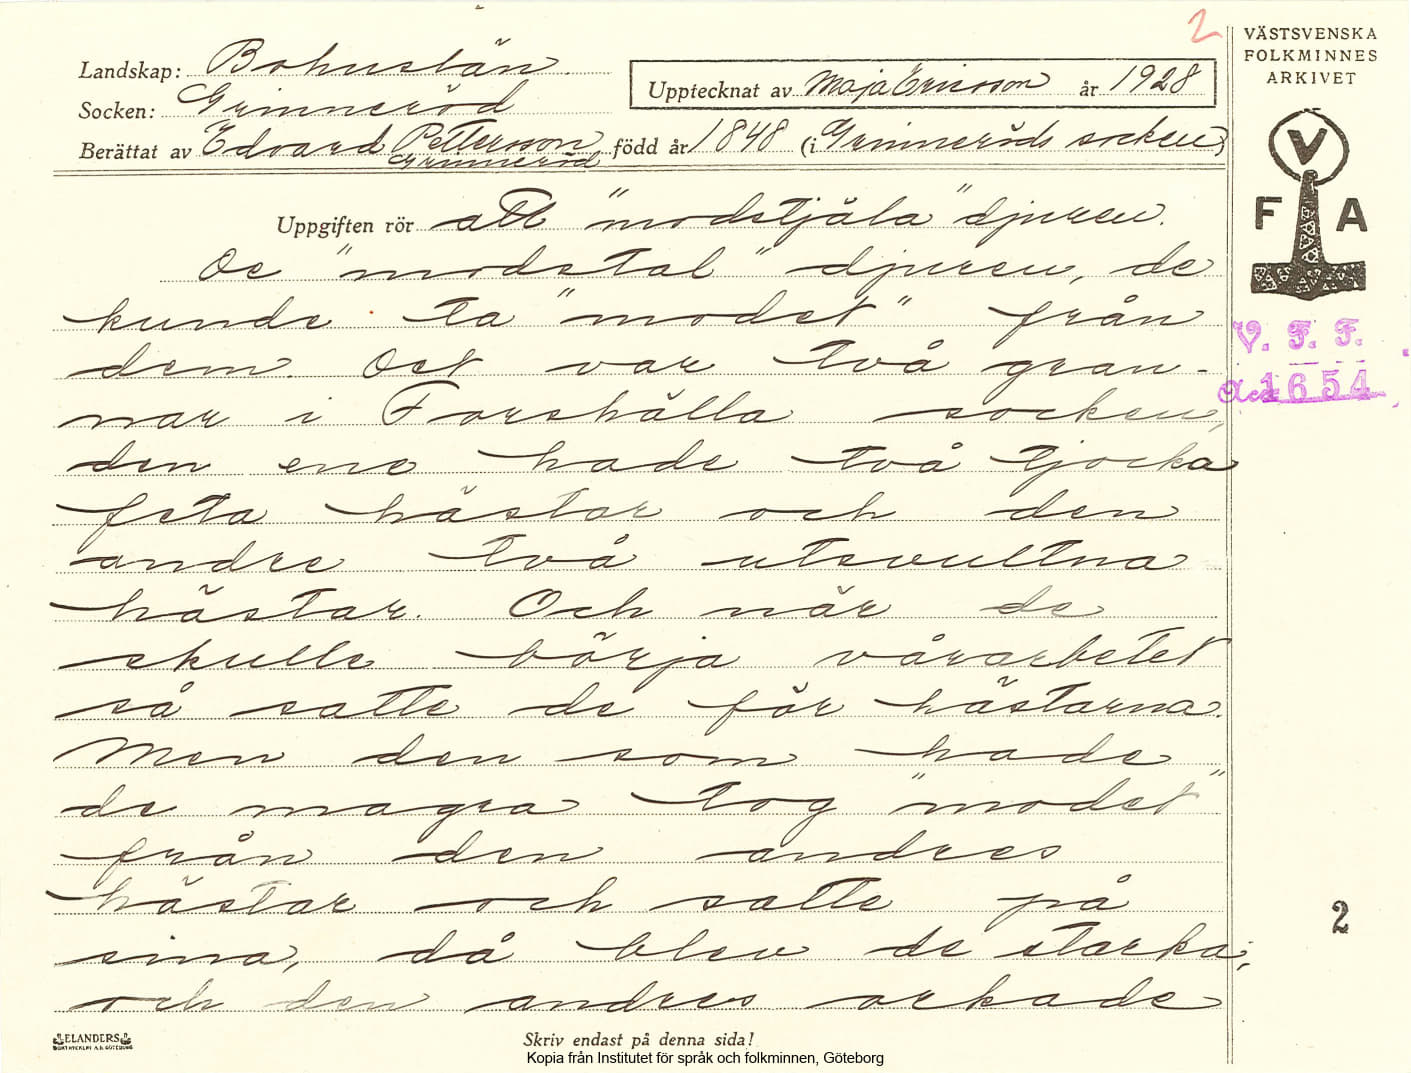 2
VÄSTSVENSKA
FOLKMINNES
ARKIVET
Landskap: Bohuslän
Socken: Grinneröd
Upptecknat av Maja Ericsson år 1928
Berättat av Edvard Pettersson född år 1848 (i Grinneröds socken)
Grinneröd
V
F A
Uppgiften rör att "modstjäla" djuren.
De "modstal" djuren, de
kunde ta "modet" från
dem. Det var två gran-
nar i Forshälla socken,
den ene hade två tjocka
feta hästar och den
andre två utsvultna
hästar. Och när de
skulle börja vårarbetet
så satte de för hästarna.
Men den som hade
de magra tog "modet"
från den andres
hästar och satte på
sina, då blev de starka,
och den andres orkade
V. F. F.
Acc 1654
2
ELANDERS
BOKTRYCKERI A.B. GÖTEBORG
Skriv endast på denna sida!
Kopia från Institutet för språk och folkminnen, Göteborg